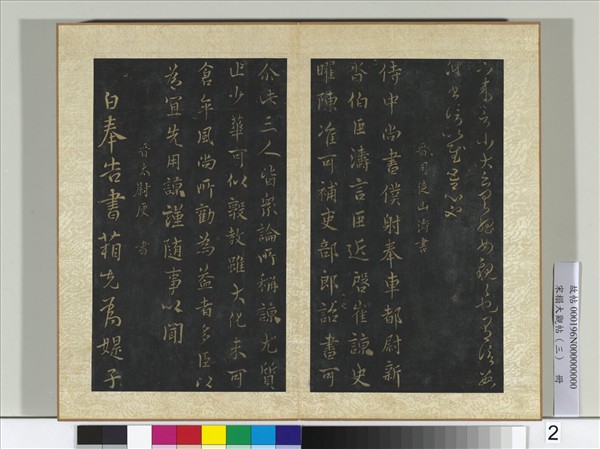 晉司徒山濤書
侍中尚書僕射奉車都尉新
沓伯臣濤言臣近啓崔諒史
曜陳准可補吏部郎詔書可
尒此三人皆衆論所稱諒尤質
止少華可以敦教雖大化未可
倉卒風尚所勸為益者多臣以
為宜先用諒謹隨事以聞
晉太尉庾 書
白奉告書箱先為媞子
故帖000196N000000000
宋搨大觀帖(三) 冊
2